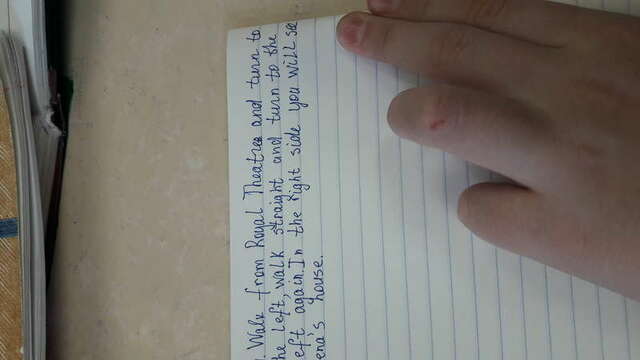 . Walk from Royal Theatre and turn to
he left, walk straight and turn to the
eft again. In the right side you will see
ena's house.